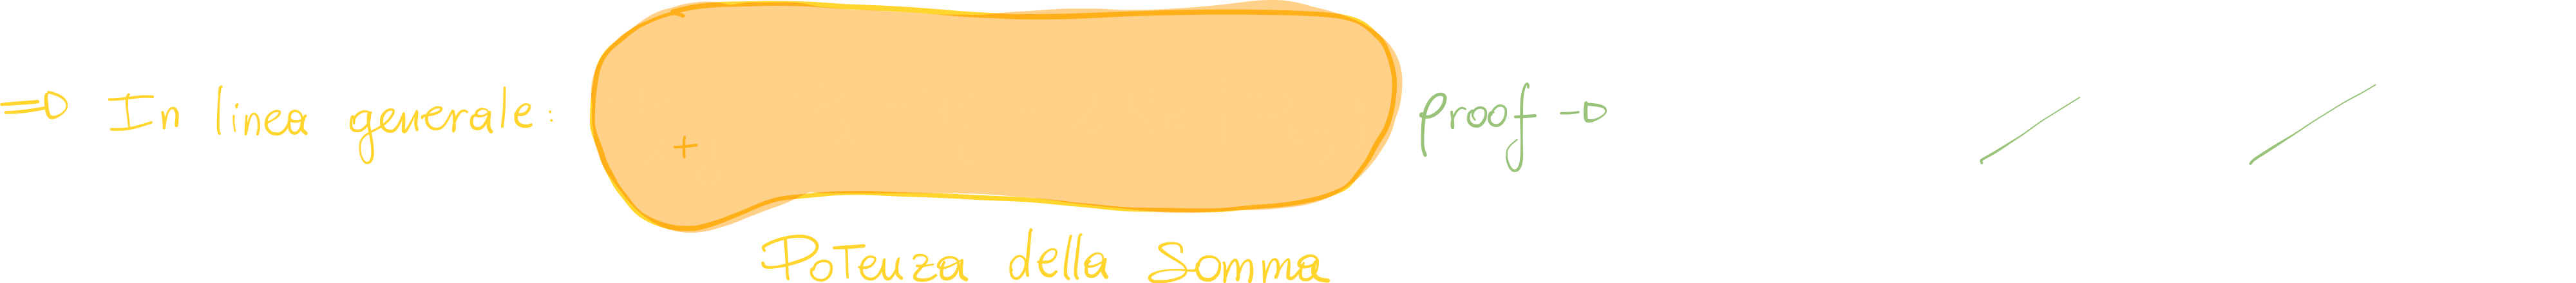 ⇒ In linea generale: + proof →
Potenza della Somma